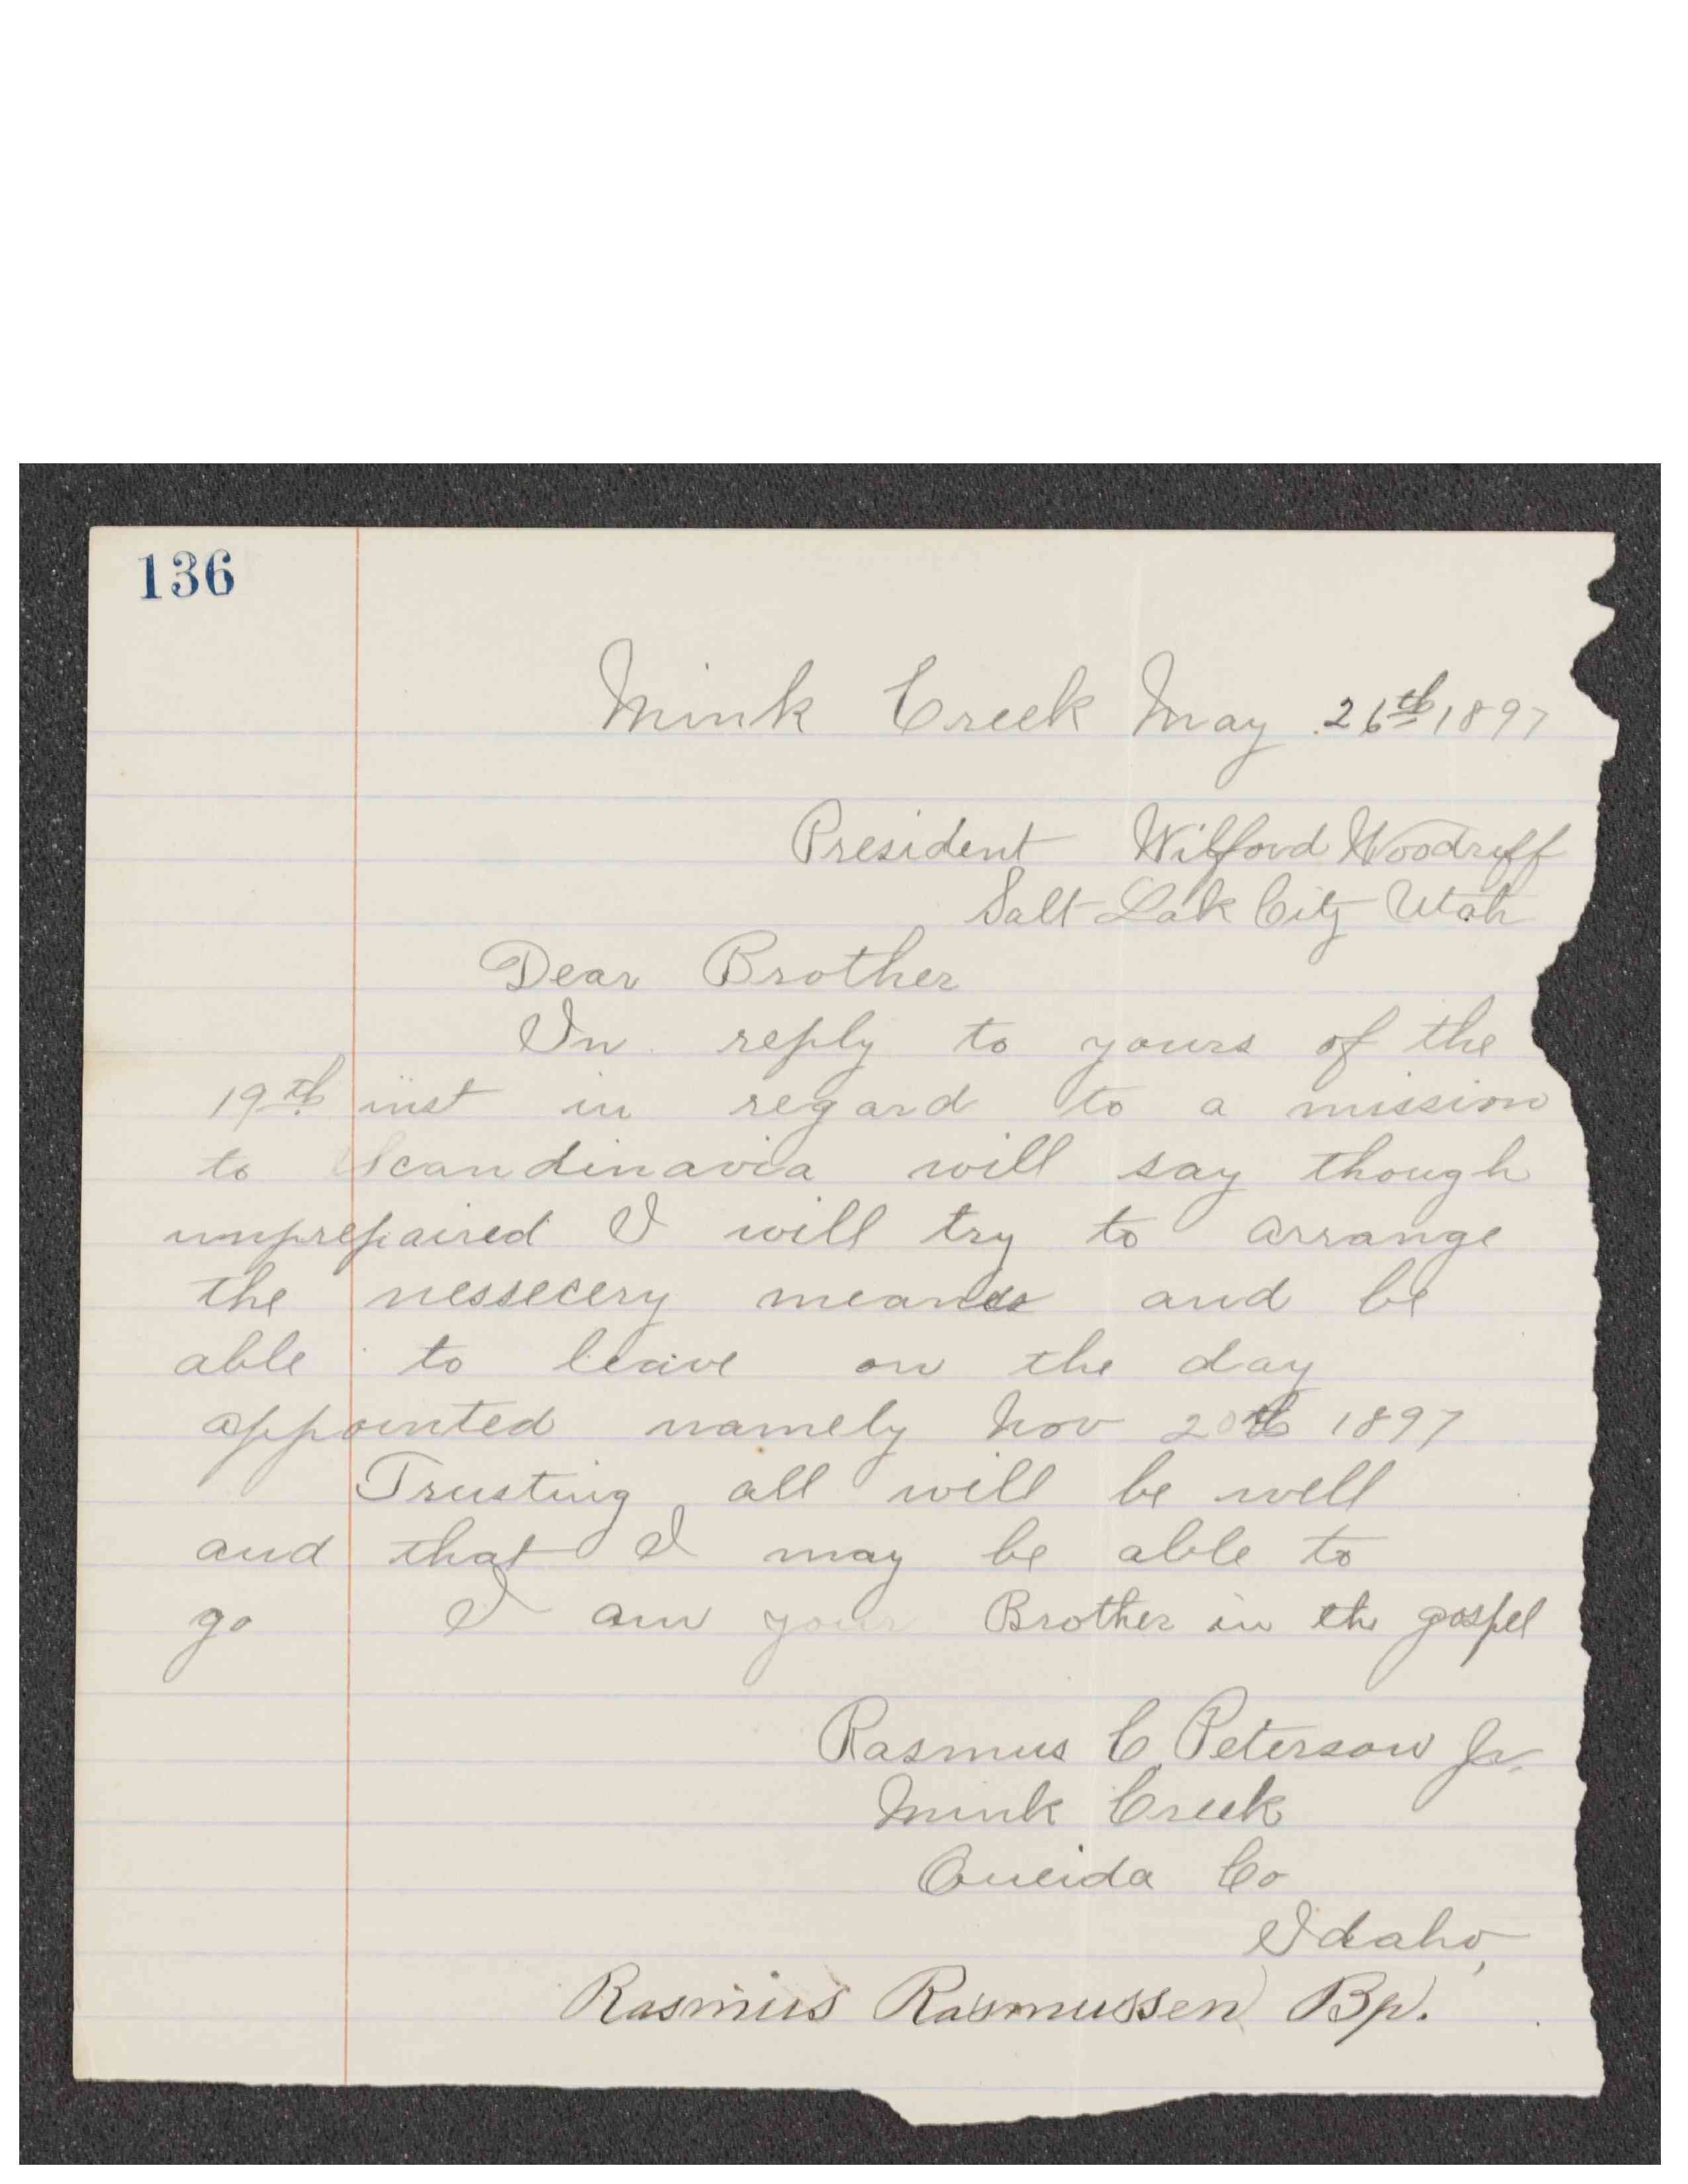 136
Mink Creek May 26th 1897
President Wilford Woodruff
Salt Lak City Utah
Dear Brother
In reply to yours of the
19th inst in regard to a mission
to Scandinavia will say though
unprepaired I will try to arrange
the nessecery means and be
able to leave on the day
appointed namely Nov 20th 1897
Trusting all will be well
and that I may be able to
go I am your Brother in the gospel
Rasmus C. Peterson Jr.
Mink Creek
Oneida Co
Idaho,
Rasmus Rasmussen Bp.